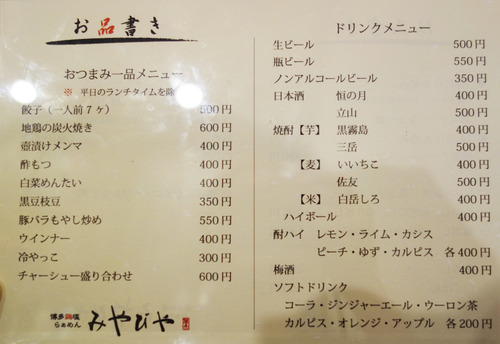 お品書き
おつまみ一品メニュー
※ 平日のランチタイムを除
餃子（一人前７ヶ） 500円
地鶏の炭火焼き 600円
壺漬けメンマ 400円
酢もつ 400円
白菜めんたい 400円
黒豆枝豆 350円
豚バラもやし炒め 550円
ウインナー 400円
冷やっこ 300円
チャーシュー盛り合わせ 600円
博多 塩
らぁめん みやびや
ドリンクメニュー
生ビール 500円
瓶ビール 550円
ノンアルコールビール 350円
日本酒 恒の月 400円
立山 500円
焼酎【芋】 黒霧島 400円
三岳 500円
【麦】 いいちこ 400円
佐友 500円
【米】 白岳しろ 400円
ハイボール 400円
酎ハイ レモン・ライム・カシス
ピーチ・ゆず・カルピス 各400円
梅酒 400円
ソフトドリンク
コーラ・ジンジャーエール・ウーロン茶
カルピス・オレンジ・アップル 各200円